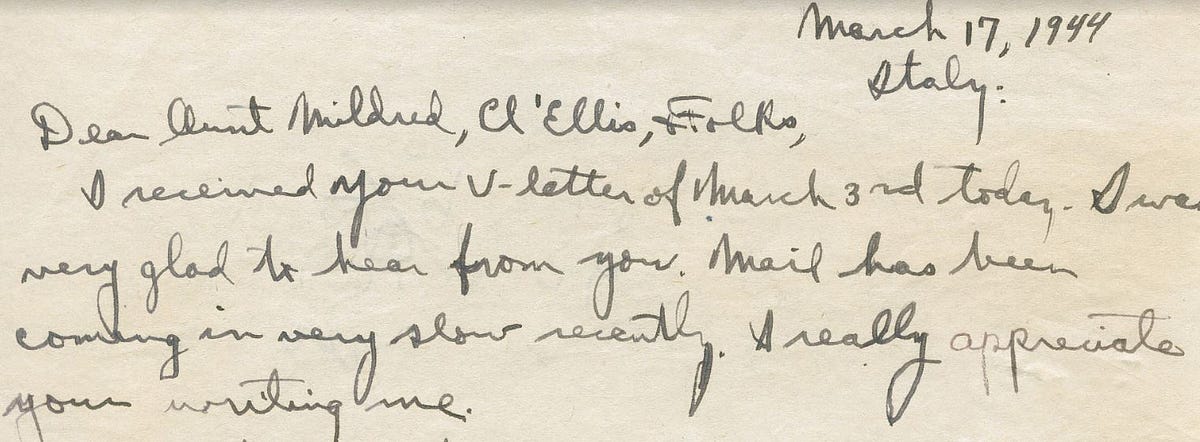 March 17, 1944
Italy.
Dear Aunt Mildred, Cl'Ellis, & Folks,
I received your V-letter of March 3rd today. I was
very glad to hear from you. Mail has been
coming in very slow recently. I really appreciate
your writing me.